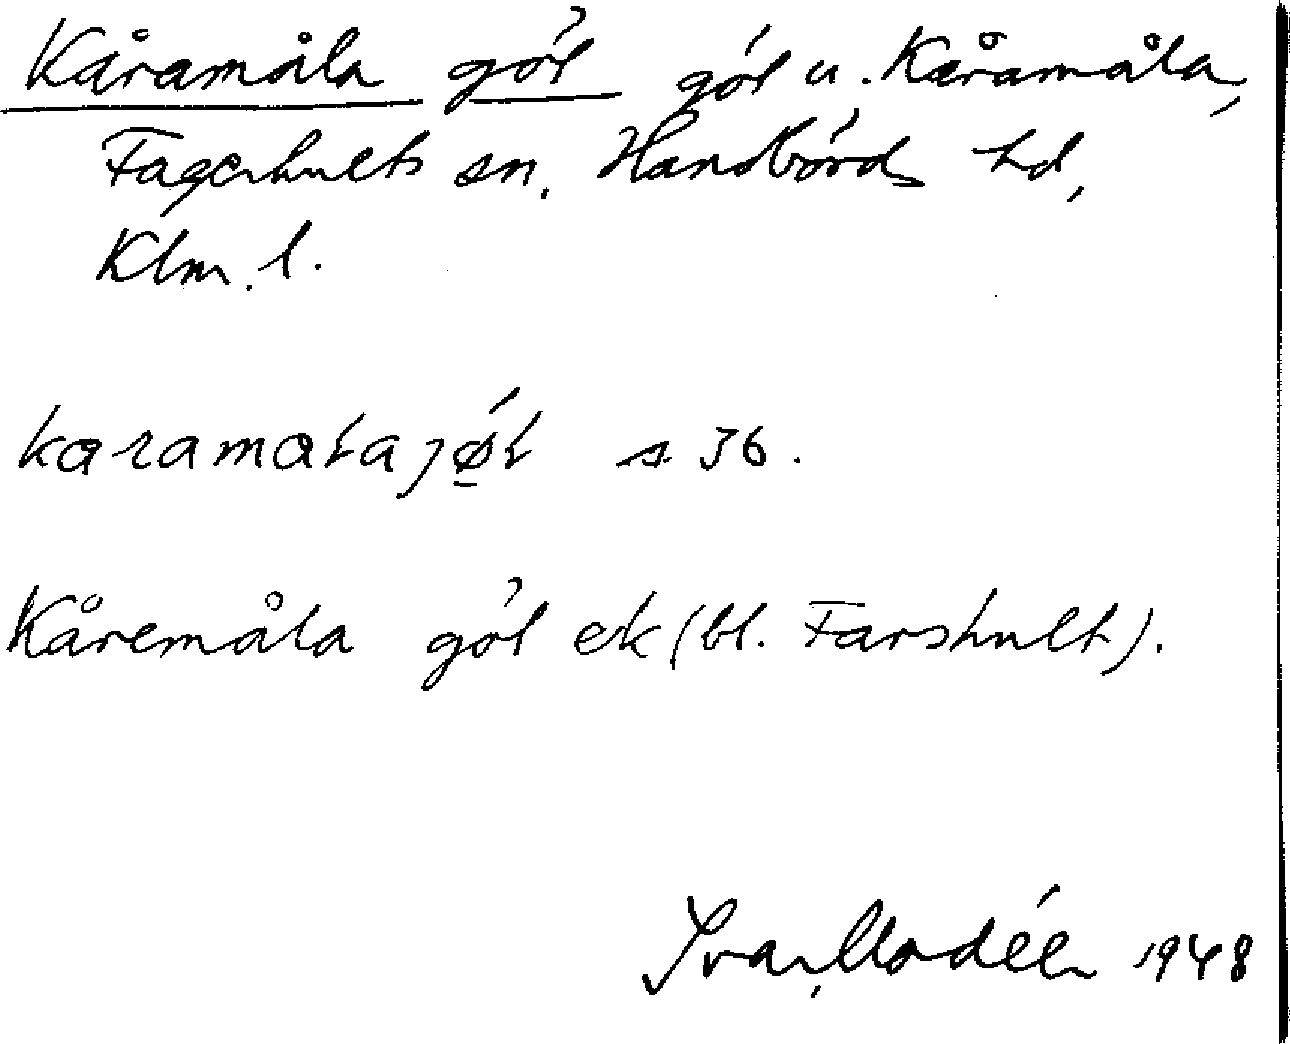 Kåramåla göl göl u. Kåramåla,
Fagerhults sn, Handbörds hd,
Klm. l.
karamałajǿ̱ł s 36.
Kåremåla göl ek (bl. Farshult).
Ivar Modéer 1948